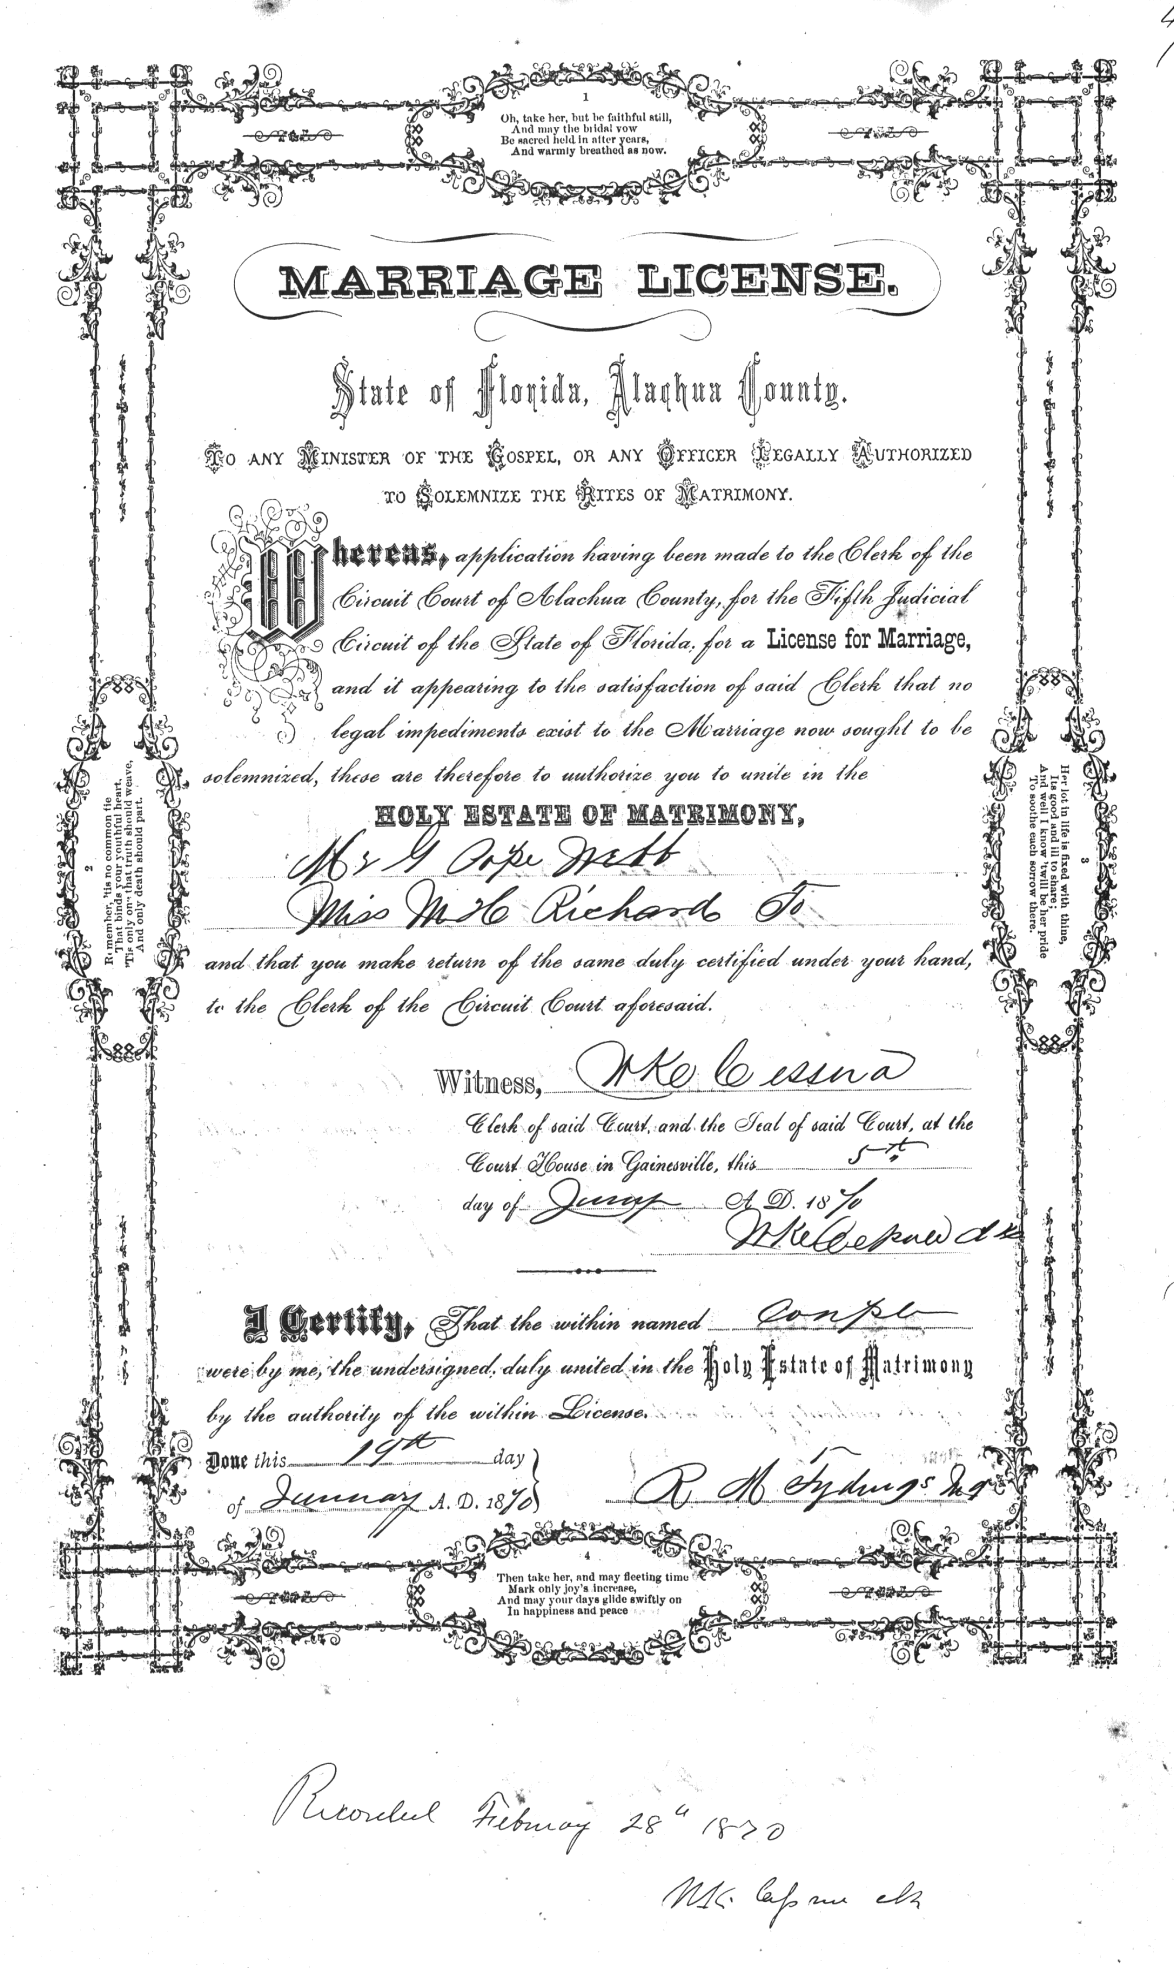 1
Oh, take her, but be faithful still,
And may the bridal vow
Be sacred held in after years,
And warmly breathed as now.
MARRIAGE LICENSE.
State of Florida, Alachua County.
TO ANY MINISTER OF THE GOSPEL, OR ANY OFFICER LEGALLY AUTHORIZED
TO SOLEMNIZE THE RITES OF MATRIMONY.
Whereas, application having been made to the Clerk of the
Circuit Court of Alachua County, for the Fifth Judicial
Circuit of the State of Florida, for a License for Marriage,
and it appearing to the satisfaction of said Clerk that no
legal impediments exist to the Marriage now sought to be
solemnized, these are therefore to authorize you to unite in the
HOLY ESTATE OF MATRIMONY,
Mr G Pope Webb
Miss M C Richard To
and that you make return of the same duly certified under your hand,
to the Clerk of the Circuit Court aforesaid.
Witness, W K Cessna
Clerk of said Court, and the Seal of said Court, at the
Court House in Gainesville, this 5th
day of January A. D. 1870
W K Cessna clk
I Certify, That the within named Couple
were by me, the undersigned, duly united in the Holy Estate of Matrimony
by the authority of the within License.
Done this 19th day
of January A. D. 1870
R M Tydings Mg
2
Remember, 'tis no common tie
That binds your youthful heart,
'Tis only one that truth should weave,
And only death should part.
3
Her lot in life is fixed with thine,
Its good and ill to share;
And well I know 'twill be her pride
To soothe each sorrow there.
4
Then take her, and may fleeting time
Mark only joy's increase,
And may your days glide swiftly on
In happiness and peace
Recorded February 28" 1870
W K Cessna clk